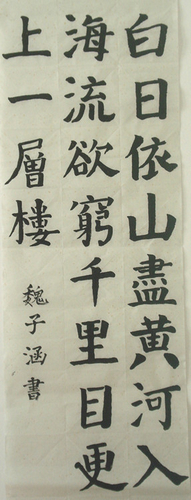 白日依山盡黄河入
海流欲窮千里目更
上一層樓
魏子涵書